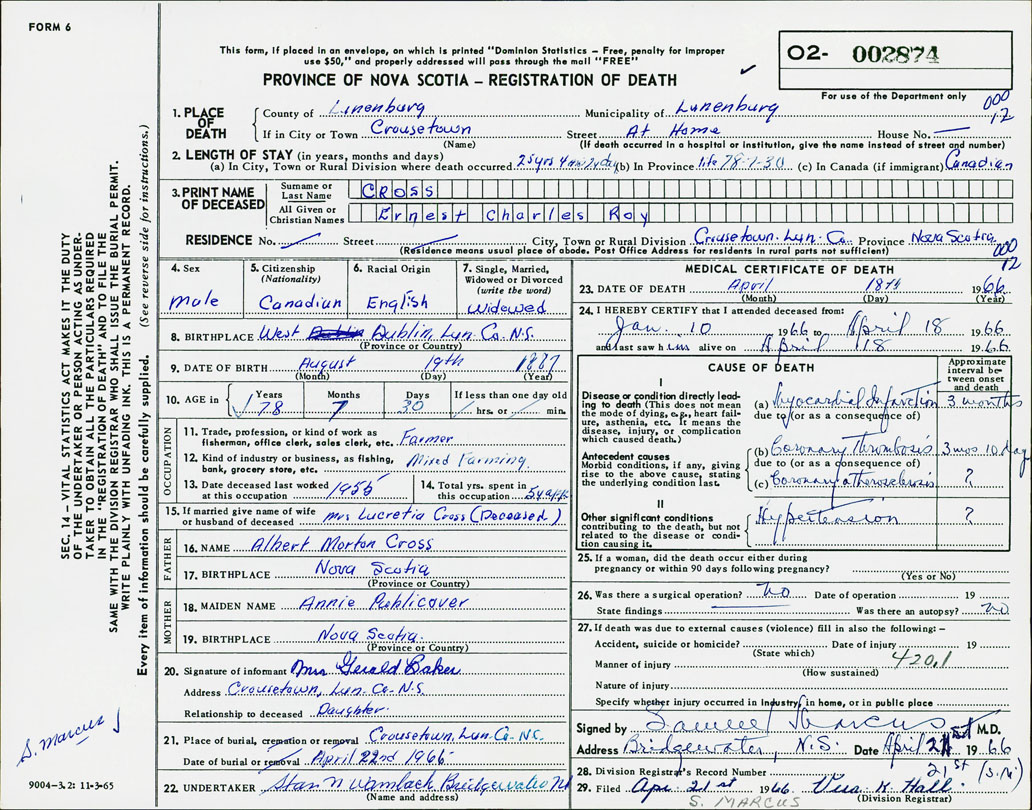 FORM 6
This form, if placed in an envelope, on which is printed "Dominion Statistics – Free, penalty for improper
use $50," and properly addressed will pass through the mail "FREE"
PROVINCE OF NOVA SCOTIA – REGISTRATION OF DEATH
O2- 002874
For use of the Department only
000
12
1. PLACE OF DEATH
County of Lunenburg Municipality of Lunenburg
If in City or Town Crousetown Street At Home House No. —
(Name) (If death occurred in a hospital or institution, give the name instead of street and number)
2. LENGTH OF STAY (in years, months and days)
(a) In City, Town or Rural Division where death occurred 25yrs 4 (b) In Province life 78-7-30 (c) In Canada (if immigrant) Canadian
3. PRINT NAME OF DECEASED
Surname or Last Name CROSS
All Given or Christian Names Ernest Charles Roy
RESIDENCE No. Street City, Town or Rural Division Crousetown. Lun. Co. Province Nova Scotia
(Residence means usual place of abode. Post Office Address for residents in rural parts not sufficient)
000
12
4. Sex
male
5. Citizenship
(Nationality)
Canadian
6. Racial Origin
English
7. Single, Married, Widowed or Divorced
(write the word)
Widowed
8. BIRTHPLACE West Dublin, Lun. Co. N.S.
(Province or Country)
9. DATE OF BIRTH August 19th 1887
(Month) (Day) (Year)
10. AGE in Years Months Days If less than one day old
78 7 30 hrs. or min.
OCCUPATION
11. Trade, profession, or kind of work as
fisherman, office clerk, sales clerk, etc. Farmer
12. Kind of industry or business, as fishing,
bank, grocery store, etc. Mixed Farming.
13. Date deceased last worked
at this occupation 1955
14. Total yrs. spent in
this occupation
15. If married give name of wife
or husband of deceased Mrs Lucretia Cross (Deceased)
FATHER
16. NAME Albert Morton Cross
17. BIRTHPLACE Nova Scotia
(Province or Country)
MOTHER
18. MAIDEN NAME Annie Publicover
19. BIRTHPLACE Nova Scotia.
(Province or Country)
20. Signature of informant Mrs Gerald Baker
Address Crousetown, Lun. Co. N.S.
Relationship to deceased Daughter.
21. Place of burial, cremation or removal Crousetown, Lun. Co. N.S.
Date of burial or removal April 22nd 1966
22. UNDERTAKER Bridgewater NS
(Name and address)
MEDICAL CERTIFICATE OF DEATH
23. DATE OF DEATH April 18th 1966
(Month) (Day) (Year)
24. I HEREBY CERTIFY that I attended deceased from:
Jan. 10 1966 to April 18 1966
and last saw him alive on April 18 1966
CAUSE OF DEATH
Approximate interval between onset and death
I
Disease or condition directly leading to death (This does not mean
the mode of dying, e.g., heart failure, asthenia, etc. It means the
disease, injury, or complication
which caused death.)
(a) Myocardial Infarction 3 months
due to (or as a consequence of)
Antecedent causes
Morbid conditions, if any, giving
rise to the above cause, stating
the underlying condition last.
(b) Coronary thrombosis 3 mos 10 day
due to (or as a consequence of)
(c) Coronary atherosclerosis ?
II
Other significant conditions
contributing to the death, but not
related to the disease or condition causing it.
Hypertension ?
25. If a woman, did the death occur either during
pregnancy or within 90 days following pregnancy?
(Yes or No)
26. Was there a surgical operation? no Date of operation 19
State findings Was there an autopsy? no
27. If death was due to external causes (violence) fill in also the following: –
Accident, suicide or homicide? Date of injury 19
(State which)
420.1
Manner of injury
(How sustained)
Nature of injury
Specify whether injury occurred in industry, in home, or in public place
Signed by Samuel Marcus M.D.
Address Bridgewater, N.S. Date April 21st 1966
21st (S.M.)
28. Division Registrar's Record Number
29. Filed Apr. 1966. Hall
S. MARCUS (Division Registrar)
SEC. 14 – VITAL STATISTICS ACT MAKES IT THE DUTY
OF THE UNDERTAKER OR PERSON ACTING AS UNDERTAKER TO OBTAIN ALL THE PARTICULARS REQUIRED
IN THE "REGISTRATION OF DEATH" AND TO FILE THE
SAME WITH THE DIVISION REGISTRAR WHO SHALL ISSUE THE BURIAL PERMIT.
WRITE PLAINLY WITH UNFADING INK. THIS IS A PERMANENT RECORD.
Every item of information should be carefully supplied. (See reverse side for instructions.)
S. Marcus
9004-3.2: 11-3-65